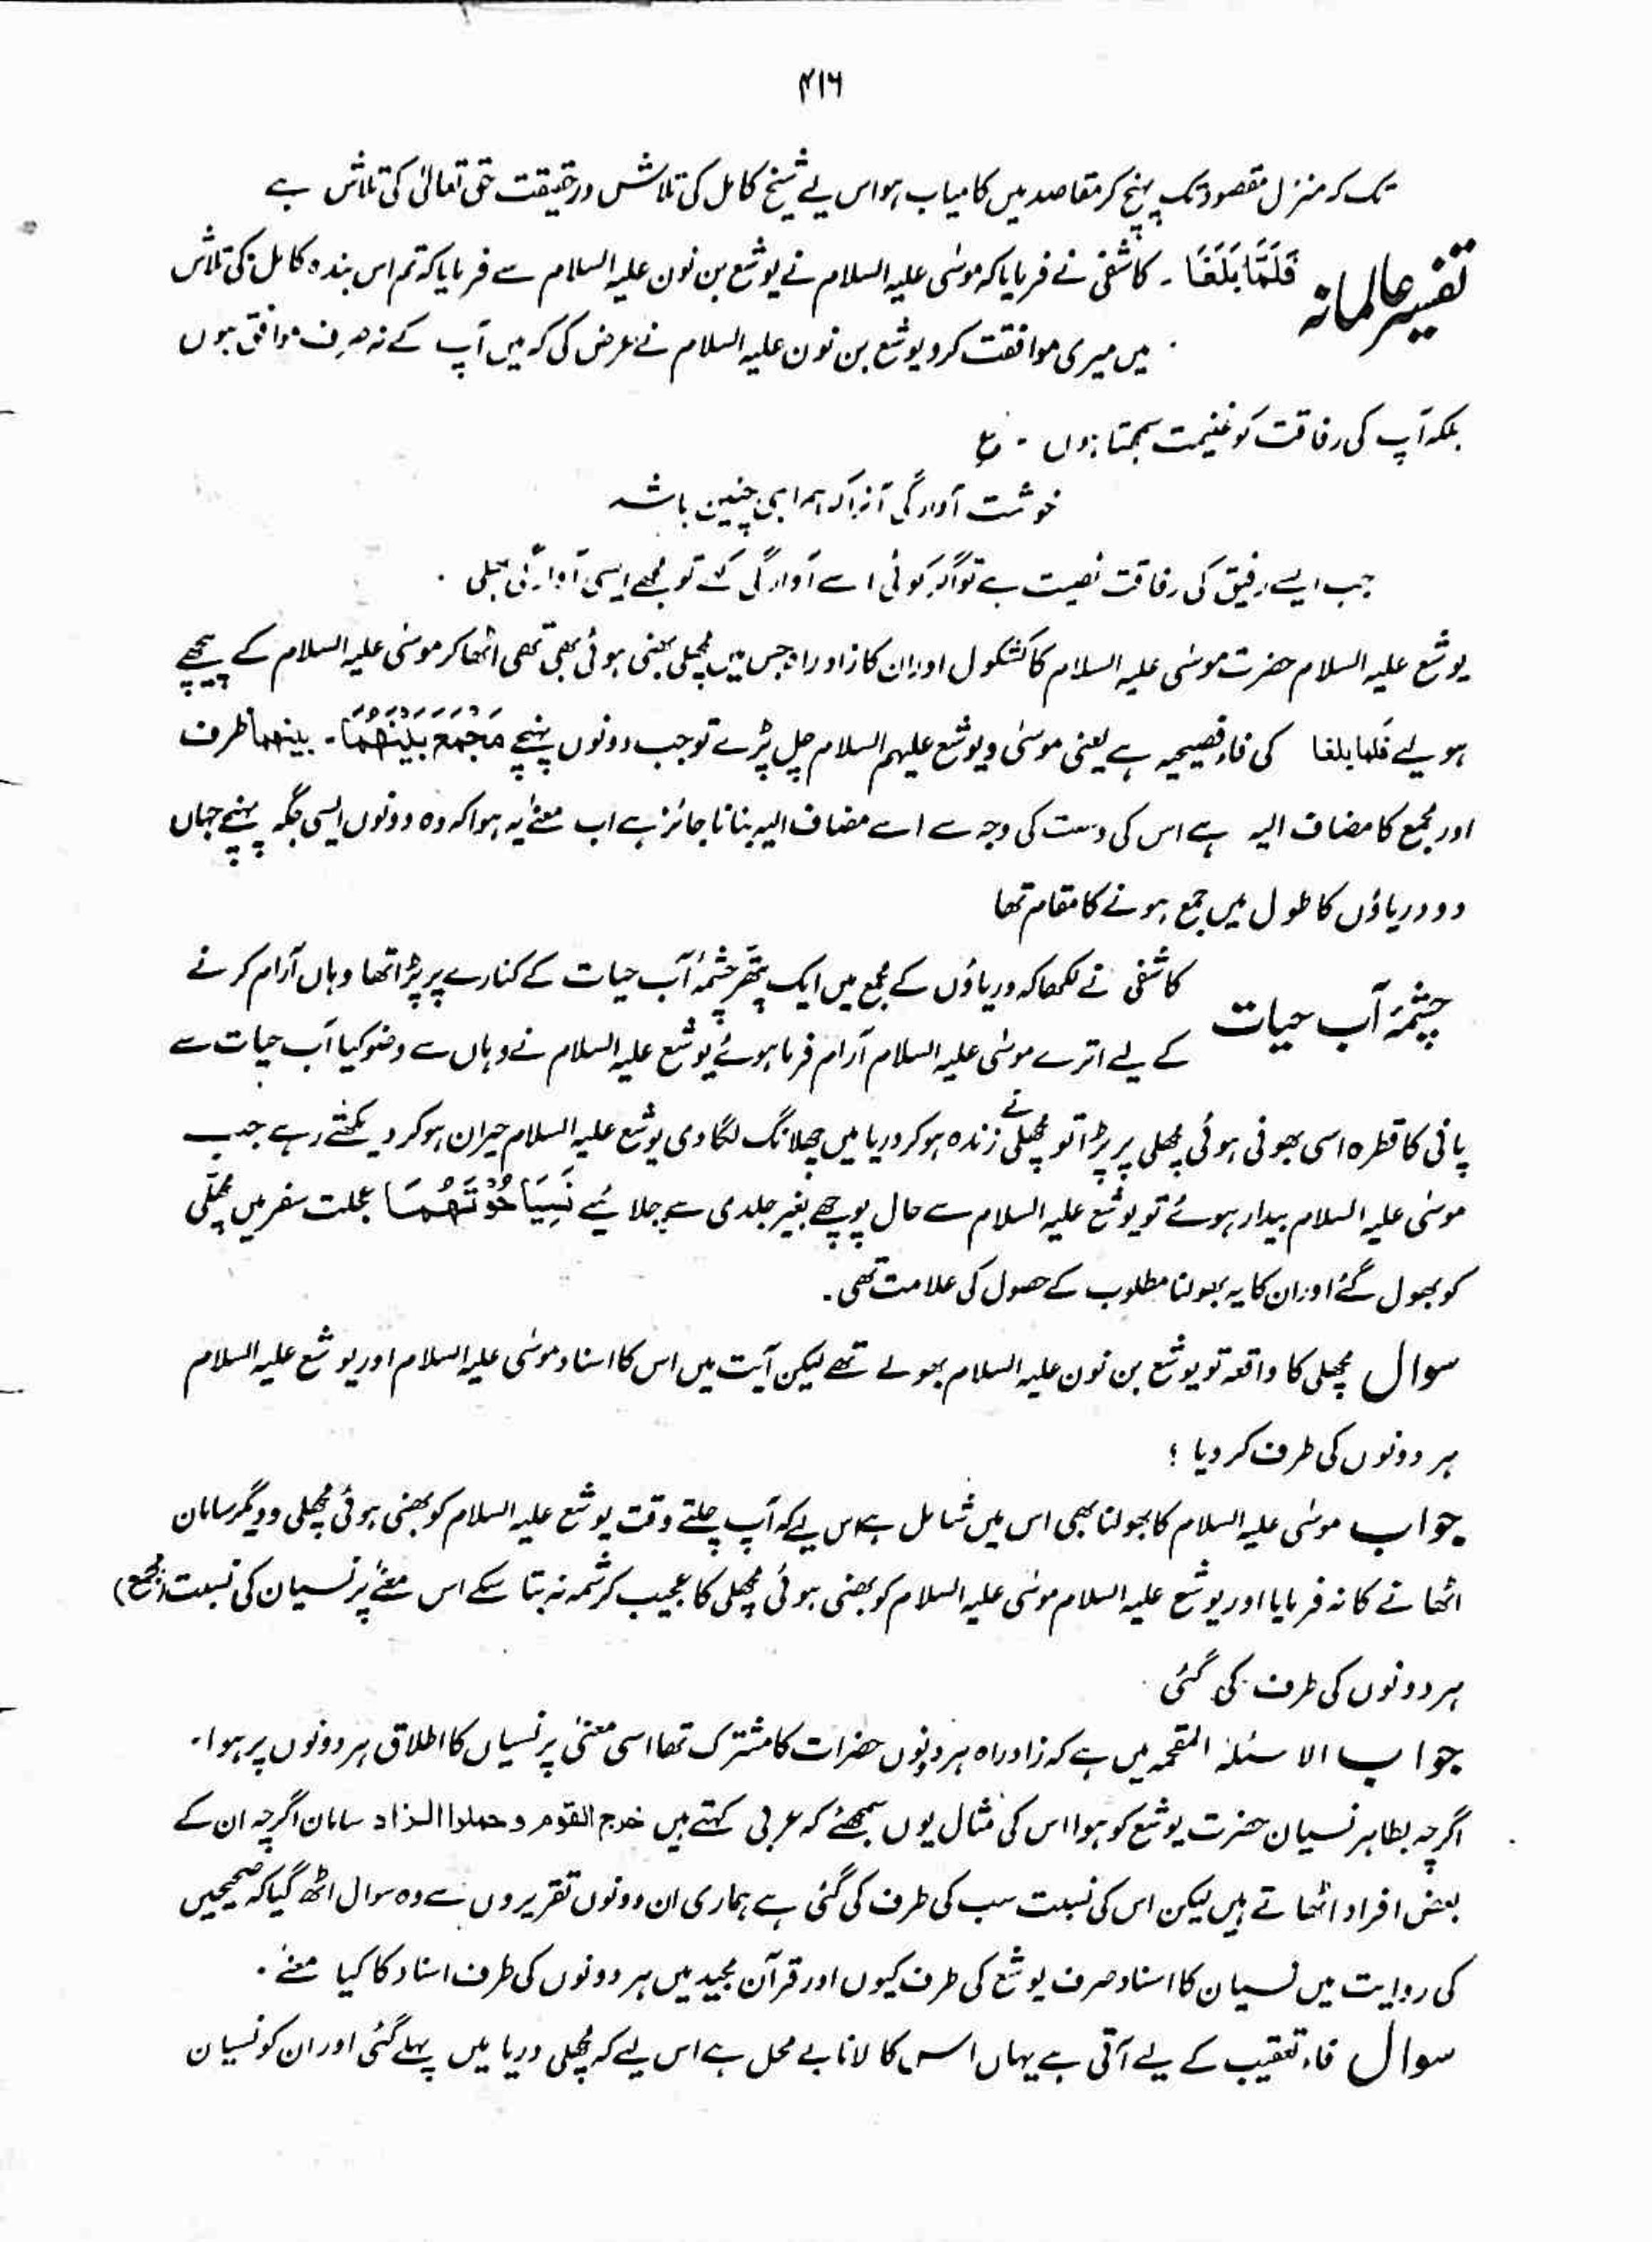 ۴۱۶
تک کہ منزل مقصود تک پہنچ کر مقاصد میں کامیاب ہو اس لیے شیخ کامل کی تلاش درحقیقت حق تعالیٰ کی تلاش ہے
تفسیر عالمانہ
فَلَمَّا بَلَغَا ۔ کاشفی نے فرمایا کہ موسیٰ علیہ السلام نے یوشع بن نون علیہ السلام سے فرمایا کہ تم اس بندہ کامل کی تلاش
میں میری موافقت کرو یوشع بن نون علیہ السلام نے عرض کی کہ میں آپ کے نہ صرف موافق ہوں
بلکہ آپ کی رفاقت کو غنیمت سمجھتا ہوں ۔ ع
خوشت آوارگی آنرا کہ ہمراہی چنین باشد
جب ایسے رفیق کی رفاقت نصیب ہے تو اگر کوئی اسے آوارگی کہے تو مجھے ایسی آوارگی بھلی ۔
یوشع علیہ السلام حضرت موسیٰ علیہ السلام کا کشکول اور ان کا زاد راہ جس میں مچھلی بھنی ہوئی بھی تھی اٹھا کر موسیٰ علیہ السلام کے پیچھے
ہو لیے فلما بلغا کی فاء فصیحیہ ہے یعنی موسیٰ و یوشع علیہم السلام چل پڑے تو جب دونوں پہنچے مَجْمَعَ بَيْنِهِمَا ۔ بینھما ظرف
اور مجمع کا مضاف الیہ ہے اس کی وسعت کی وجہ سے اسے مضاف الیہ بنانا جائز ہے اب معنےٰ یہ ہوا کہ وہ دونوں ایسی جگہ پہنچے جہاں
دو دریاؤں کا طول میں جمع ہونے کا مقام تھا
چشمۂ آب حیات
کاشفی نے لکھا کہ دریاؤں کے مجمع میں ایک پتھر چشمۂ آب حیات کے کنارے پر پڑا تھا وہاں آرام کرنے
کے لیے اترے موسیٰ علیہ السلام آرام فرما ہوئے یوشع علیہ السلام نے وہاں سے وضو کیا آب حیات سے
پانی کا قطرہ اسی بھونی ہوئی مچھلی پر پڑا تو مچھلی نے زندہ ہو کر دریا میں چھلانگ لگا دی یوشع علیہ السلام حیران ہو کر دیکھتے رہے جب
موسیٰ علیہ السلام بیدار ہوئے تو یوشع علیہ السلام سے حال پوچھے بغیر جلدی سے چلا ئیے نَسِيَا حُوْتَهُمَا عجلت سفر میں مچھلی
کو بھول گئے اور ان کا یہ بھولنا مطلوب کے حصول کی علامت تھی ۔
سوال مچھلی کا واقعہ تو یوشع بن نون علیہ السلام بھولے تھے لیکن آیت میں اس کا اسناد موسیٰ علیہ السلام اور یوشع علیہ السلام
ہر دونوں کی طرف کر دیا ؟
جواب موسیٰ علیہ السلام کا بھولنا بھی اس میں شامل ہے اس لیے کہ آپ چلتے وقت یوشع علیہ السلام کو بھنی ہوئی مچھلی و دیگر سامان
اٹھانے کا نہ فرمایا اور یوشع علیہ السلام موسیٰ علیہ السلام کو بھنی ہوئی مچھلی کا عجیب کرشمہ نہ بتا سکے اس معنےٰ پر نسیان کی نسبت (مجمع)
ہر دونوں کی طرف کی گئی
جواب الاسئلۃ المقحمہ میں ہے کہ زاد راہ ہر دونوں حضرات کا مشترک تھا اسی معنیٰ پر نسیاں کا اطلاق ہر دونوں پر ہوا ۔
اگرچہ بظاہر نسیان حضرت یوشع کو ہوا اس کی مثال یوں سمجھئے کہ عربی کہتے ہیں خرج القوم و حملوا الزاد سامان اگرچہ ان کے
بعض افراد اٹھاتے ہیں لیکن اس کی نسبت سب کی طرف کی گئی ہے ہماری ان دونوں تقریروں سے وہ سوال اٹھ گیا کہ صحیحین
کی روایت میں نسیان کا اسناد صرف یوشع کی طرف کیوں اور قرآن مجید میں ہر دونوں کی طرف اسناد کا کیا معنےٰ ۔
سوال فاء تعقیب کے لیے آتی ہے یہاں اس کا لانا بے محل ہے اس لیے کہ مچھلی دریا میں پہلے گئی اور ان کو نسیان